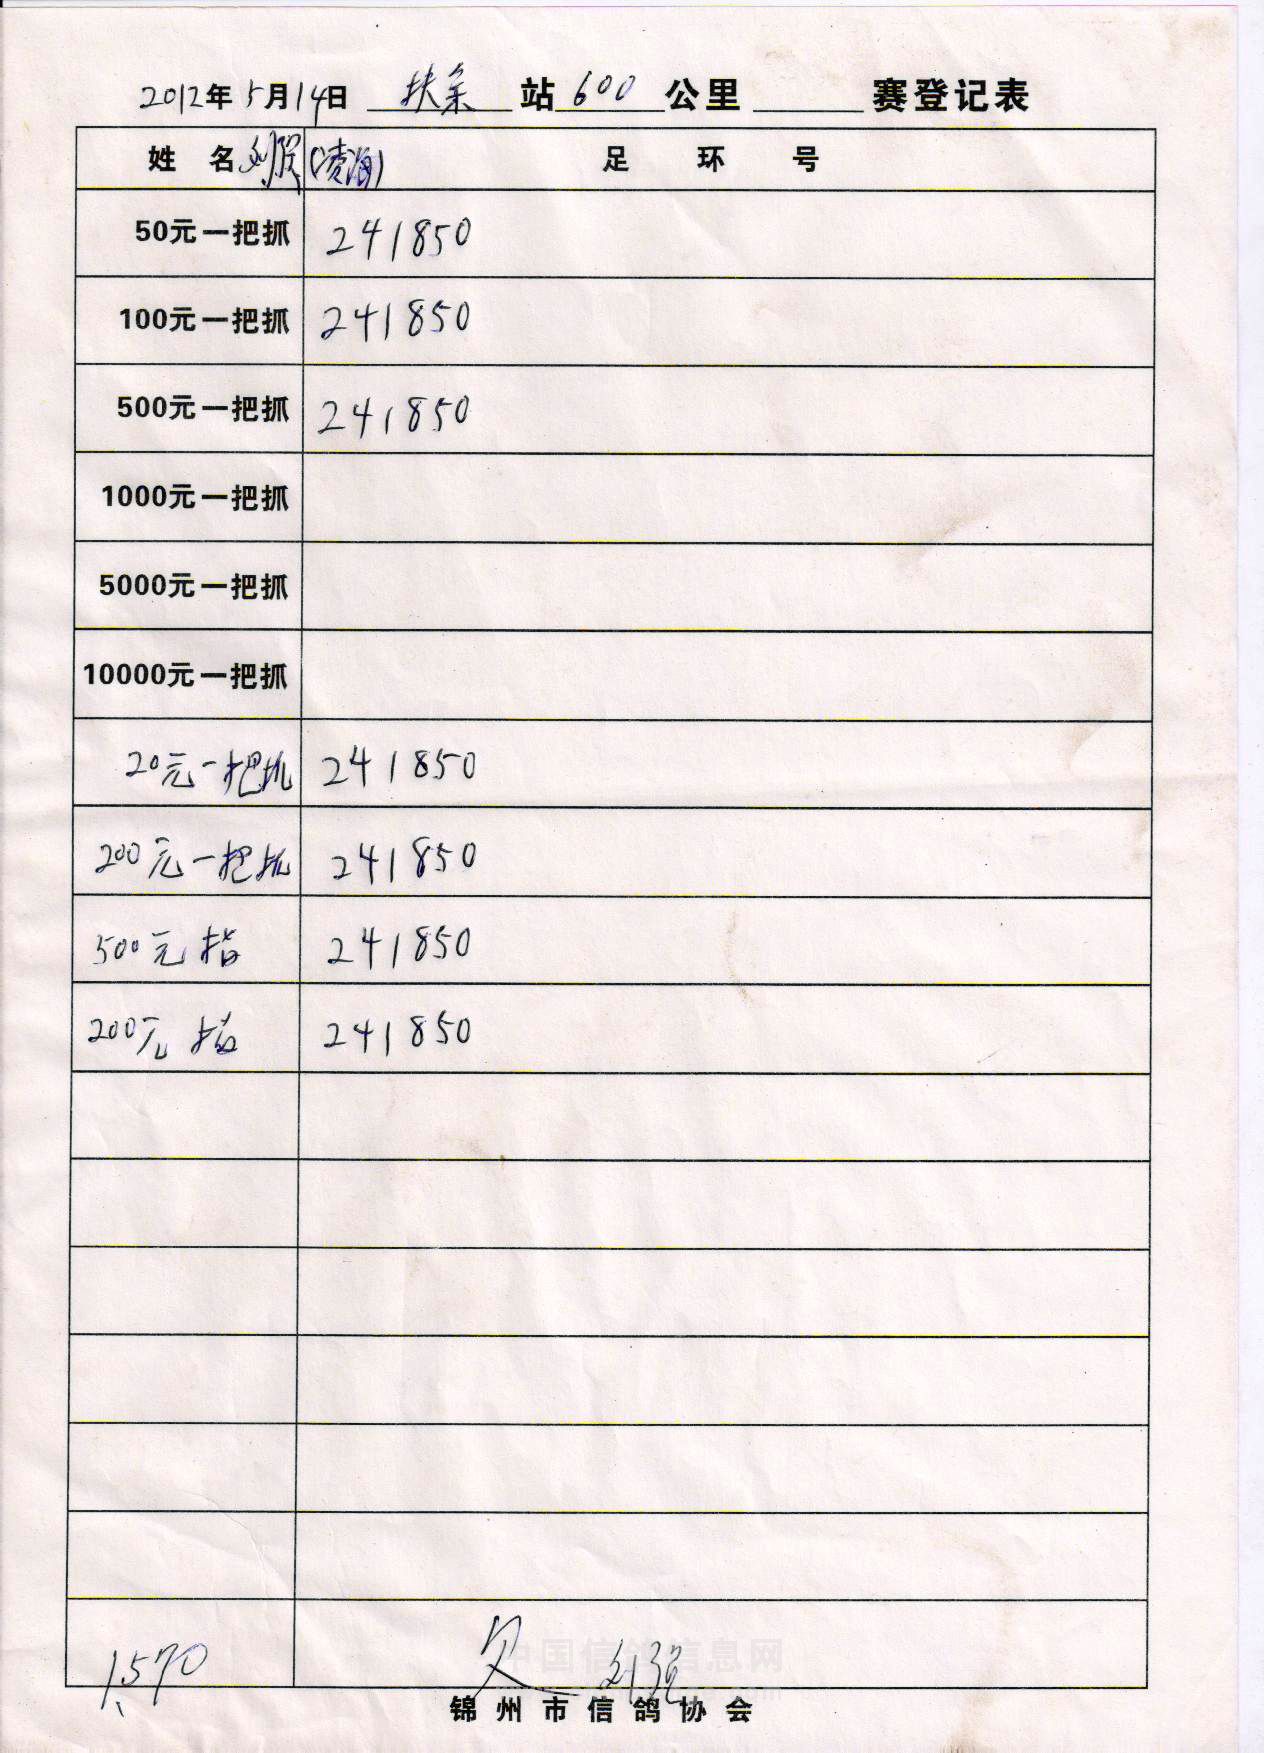 2012年5月14日 扶余 站 600 公里 赛登记表
姓 名 刘强 (凌海) 足 环 号
50元一把抓 241850
100元一把抓 241850
500元一把抓 241850
1000元一把抓
5000元一把抓
10000元一把抓
20元一把抓 241850
200元一把抓 241850
500元指 241850
200元指 241850
1570 欠 刘强
中国信鸽信息网
锦州市信鸽协会